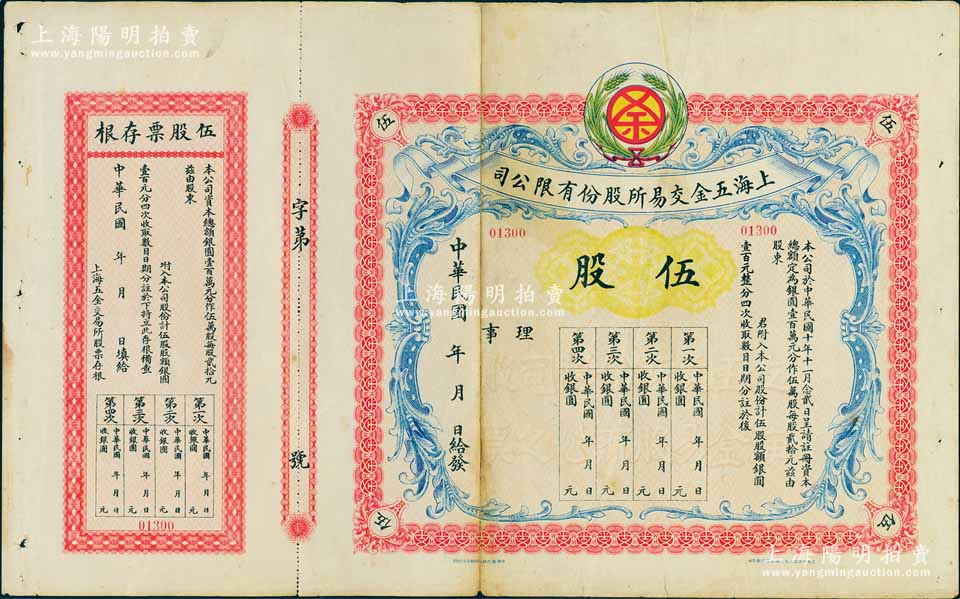 上海陽明拍賣
www.yangmingauction.com
上海五金交易所股份有限公司
伍
伍
伍
伍
01300
01300
伍股
本公司於中華民國十年十一月念貳日呈請註冊資本
總額定為銀圓壹百萬元分作伍萬股每股貳拾元茲由
股東
君附入本公司股份計伍股股額銀圓
壹百元整分四次收取數目日期分註於後
第一次
中華民國 年 月 日
收銀圓 元
第二次
中華民國 年 月 日
收銀圓 元
第三次
中華民國 年 月 日
收銀圓 元
第四次
中華民國 年 月 日
收銀圓 元
理事
中華民國 年 月 日給發
字第 號
伍股票存根
本公司資本總額銀圓壹百萬元分作伍萬股每股貳拾元
茲由股東
附入本公司股份計伍股股額銀圓
壹百元分四次收取數目日期分註於下特立此存根備查
中華民國 年 月 日填給
上海五金交易所股票存根
第一次
中華民國 年 月 日
收銀圓 元
第二次
中華民國 年 月 日
收銀圓 元
第三次
中華民國 年 月 日
收銀圓 元
第四次
中華民國 年 月 日
收銀圓 元
01300
上海陽明拍賣
www.yangmingauction.com
上海陽明拍賣
www.yangmingauction.com